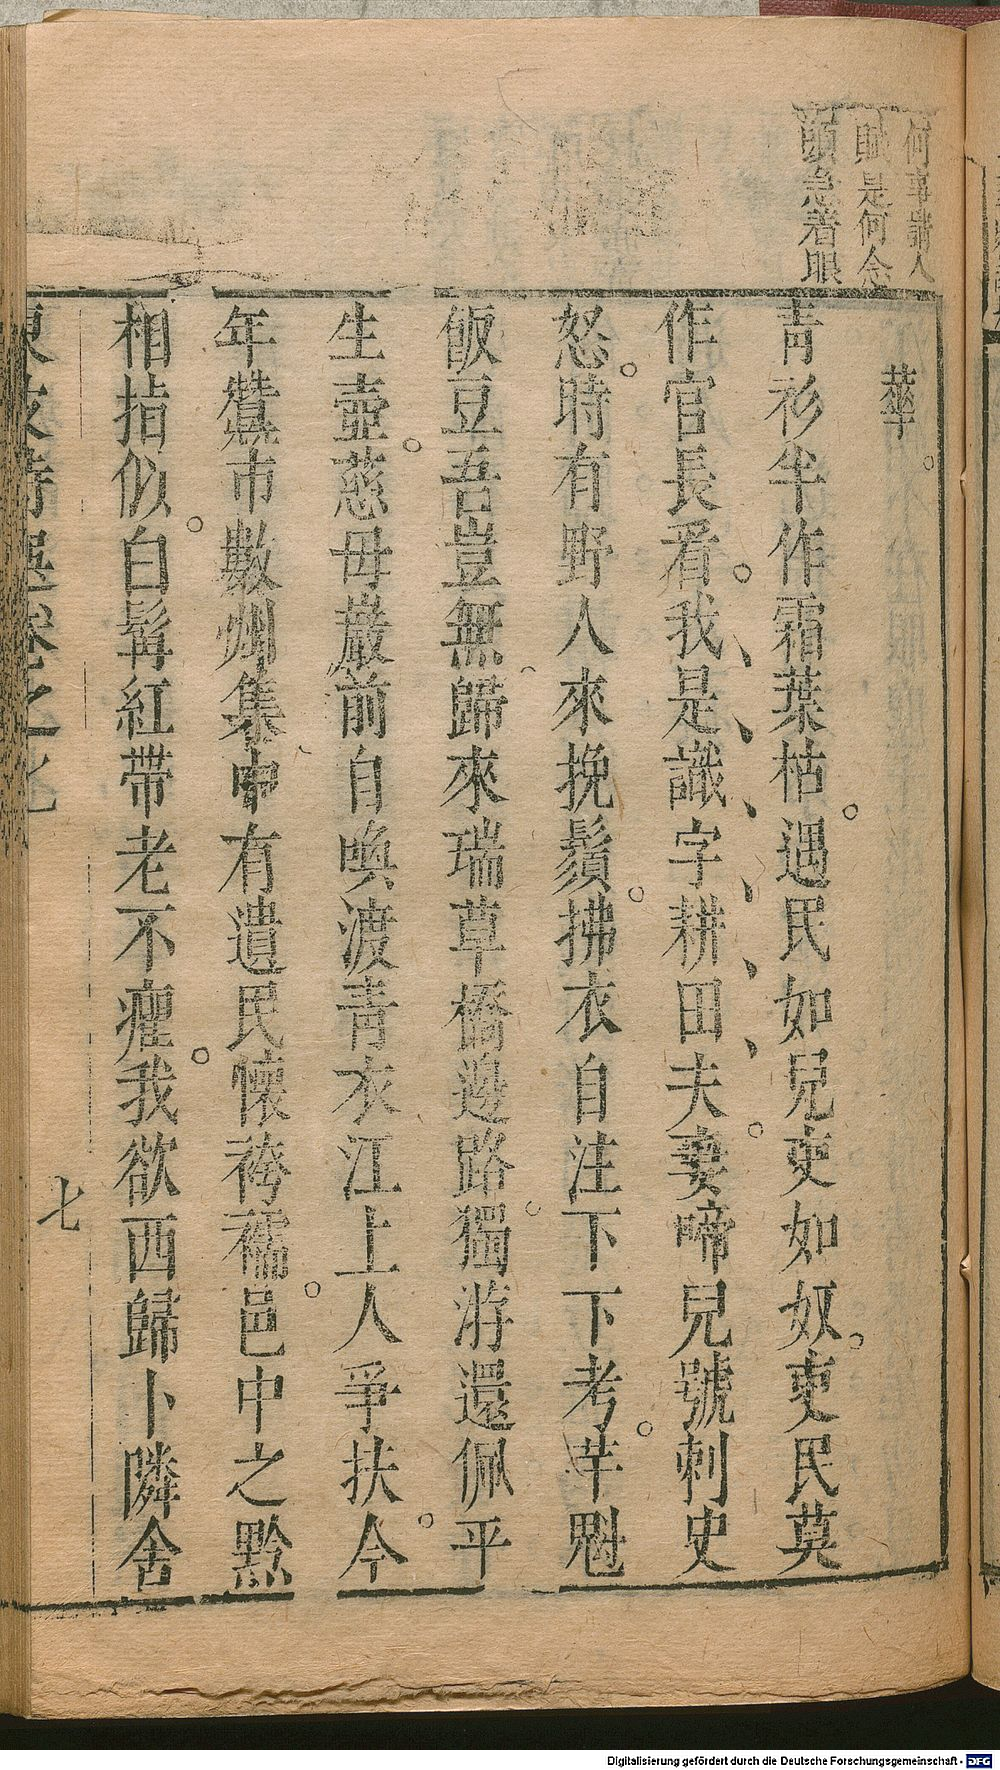 何事請人
賦是何念
頭急着眼
華
青衫半作霜葉枯遇民如兒吏如奴吏民莫
作官長看我是識字耕田夫妻啼兒號刺史
怒時有野人來挽鬚拂衣自注下下考芋魁
飯豆吾豈無歸來瑞草橋邊路獨游還佩平
生壺慈母巖前自喚渡青衣江上人爭扶今
年蠶市數州集中有遺民懷袴襦邑中之黔
相指似白髯紅帶老不癯我欲西歸卜隣舍
東坡詩選卷之七
七
Digitalisierung gefördert durch die Deutsche Forschungsgemeinschaft - DFG